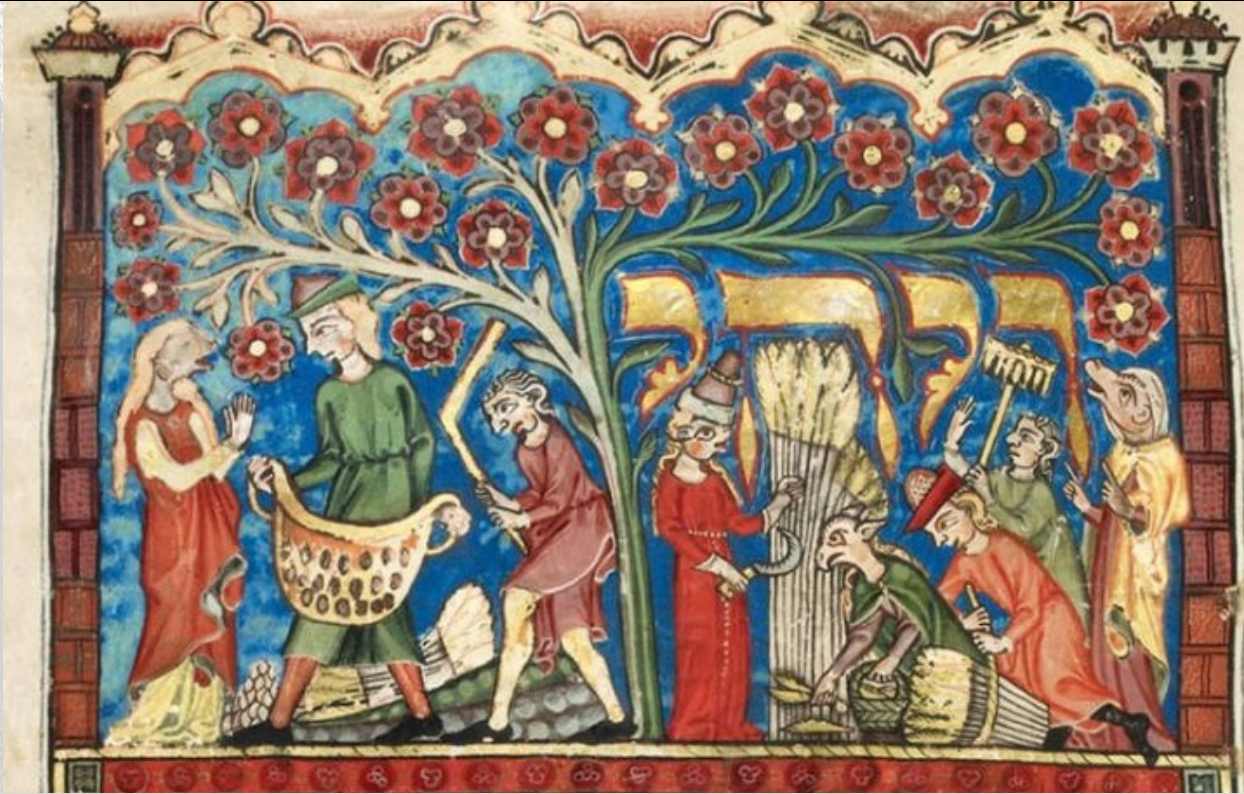 ויהי